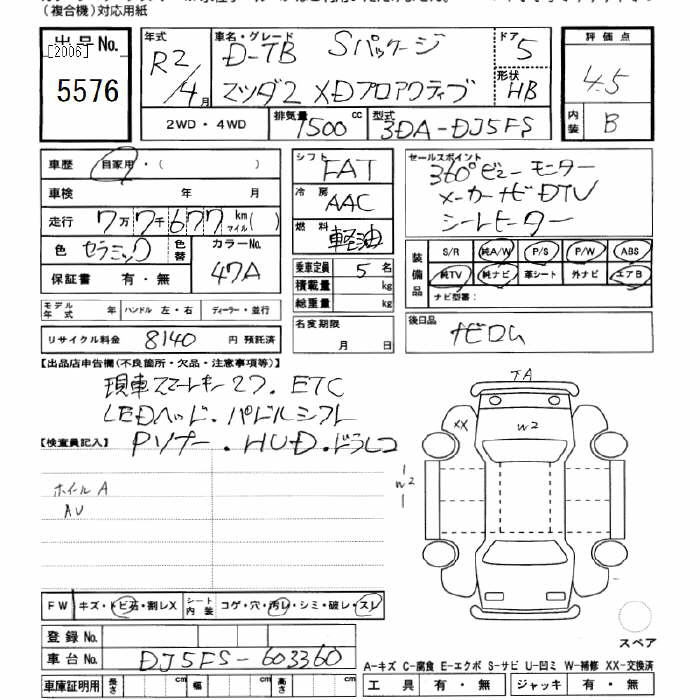 (複合機)対応用紙
出品No.
[2006]
5576
年式
R2/4月
車名・グレード
D-TB Sパッケージ
マツダ2 XDプロアクティブ
ドア
5
形状
HB
評価点
4.5
内装
B
2WD・4WD
排気量
1500cc
型式
3DA-DJ5FS
車歴 自家用・( )
車検 年 月
走行 7万7千677km マイル( )
色 セラミック 色替
カラーNo.
47A
保証書 有・無
モデル年式 年 ハンドル 左・右 ディーラー・並行
リサイクル料金 8140 円 預託済
シフト FAT
冷房 AAC
燃料 軽油
乗車定員 5名
積載量 kg
総重量 kg
名変期限
月 日
セールスポイント
360°ビューモニター
メーカーナビDTV
シートヒーター
装備品
S/R 純A/W P/S P/W ABS
純TV 純ナビ 革シート 外ナビ エアB
ナビ型番:
後日品
ナビロム
【出品店申告欄(不良箇所・欠品・注意事項等)】
現車スマートキー2ケ. ETC
LEDヘッド. パドルシフト
Pソナー. HUD. ドラレコ
【検査員記入】
ホイールA
AU
TA
XX
W2
W2
FW キズ・トビ石・割レX シート内装 コゲ・穴・汚レ・シミ・破レ・スレ
登録No.
車台No. DJ5FS-603360
車庫証明用 長さ cm 幅 cm 高さ cm
スペア
A-キズ C-腐食 E-エクボ S-サビ U-凹ミ W-補修 XX-交換済
工具 有・無 ジャッキ 有・無